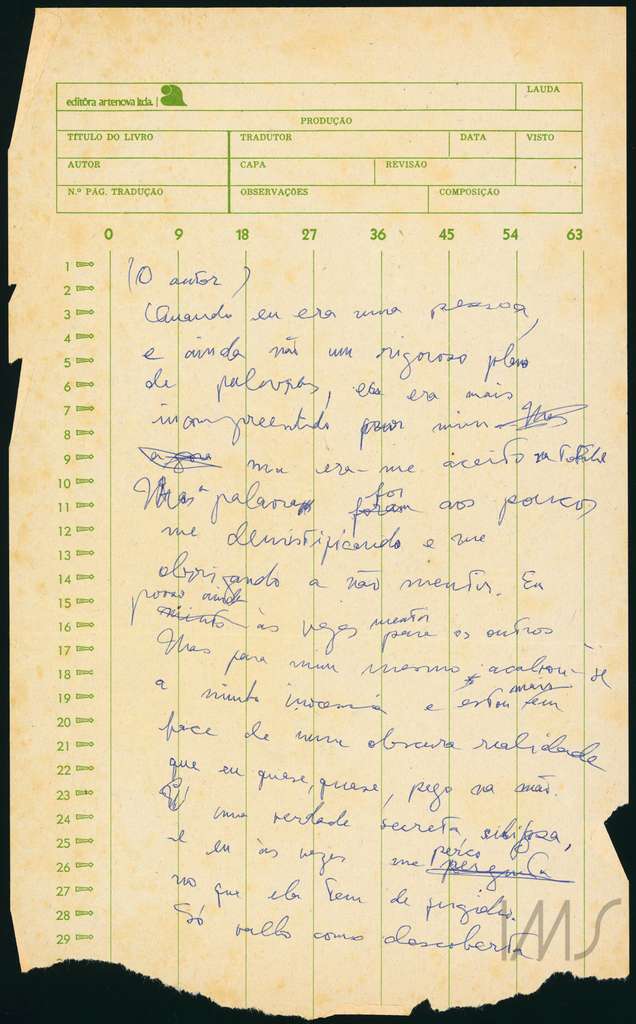 editôra artenova ltda.
LAUDA
PRODUÇÃO
TÍTULO DO LIVRO TRADUTOR DATA VISTO
AUTOR CAPA REVISÃO
N.º PÁG. TRADUÇÃO OBSERVAÇÕES COMPOSIÇÃO
0 9 18 27 36 45 54 63
1
2
3
4
5
6
7
8
9
10
11
12
13
14
15
16
17
18
19
20
21
22
23
24
25
26
27
28
29
(O autor)
Quando eu era uma pessoa,
e ainda não um rigoroso pleno
de palavras, eu era mais
incompreendido por mim. Mas
agora mas era-me aceito na totalidade
Mas a palavra foi foram aos poucos
me desmistificando e me
obrigando a não mentir. Eu
posso ainda
minto às vezes mentir para os outros
Mas para mim mesmo acabou-se
a minha inocência e estou mais em
face de uma obscura realidade
que eu quase, quase, pego na mão.
É uma verdade secreta, sigilosa,
e eu às vezes me perco pergunta
no que ela tem de fugidio.
Só valho como descoberta
IMS